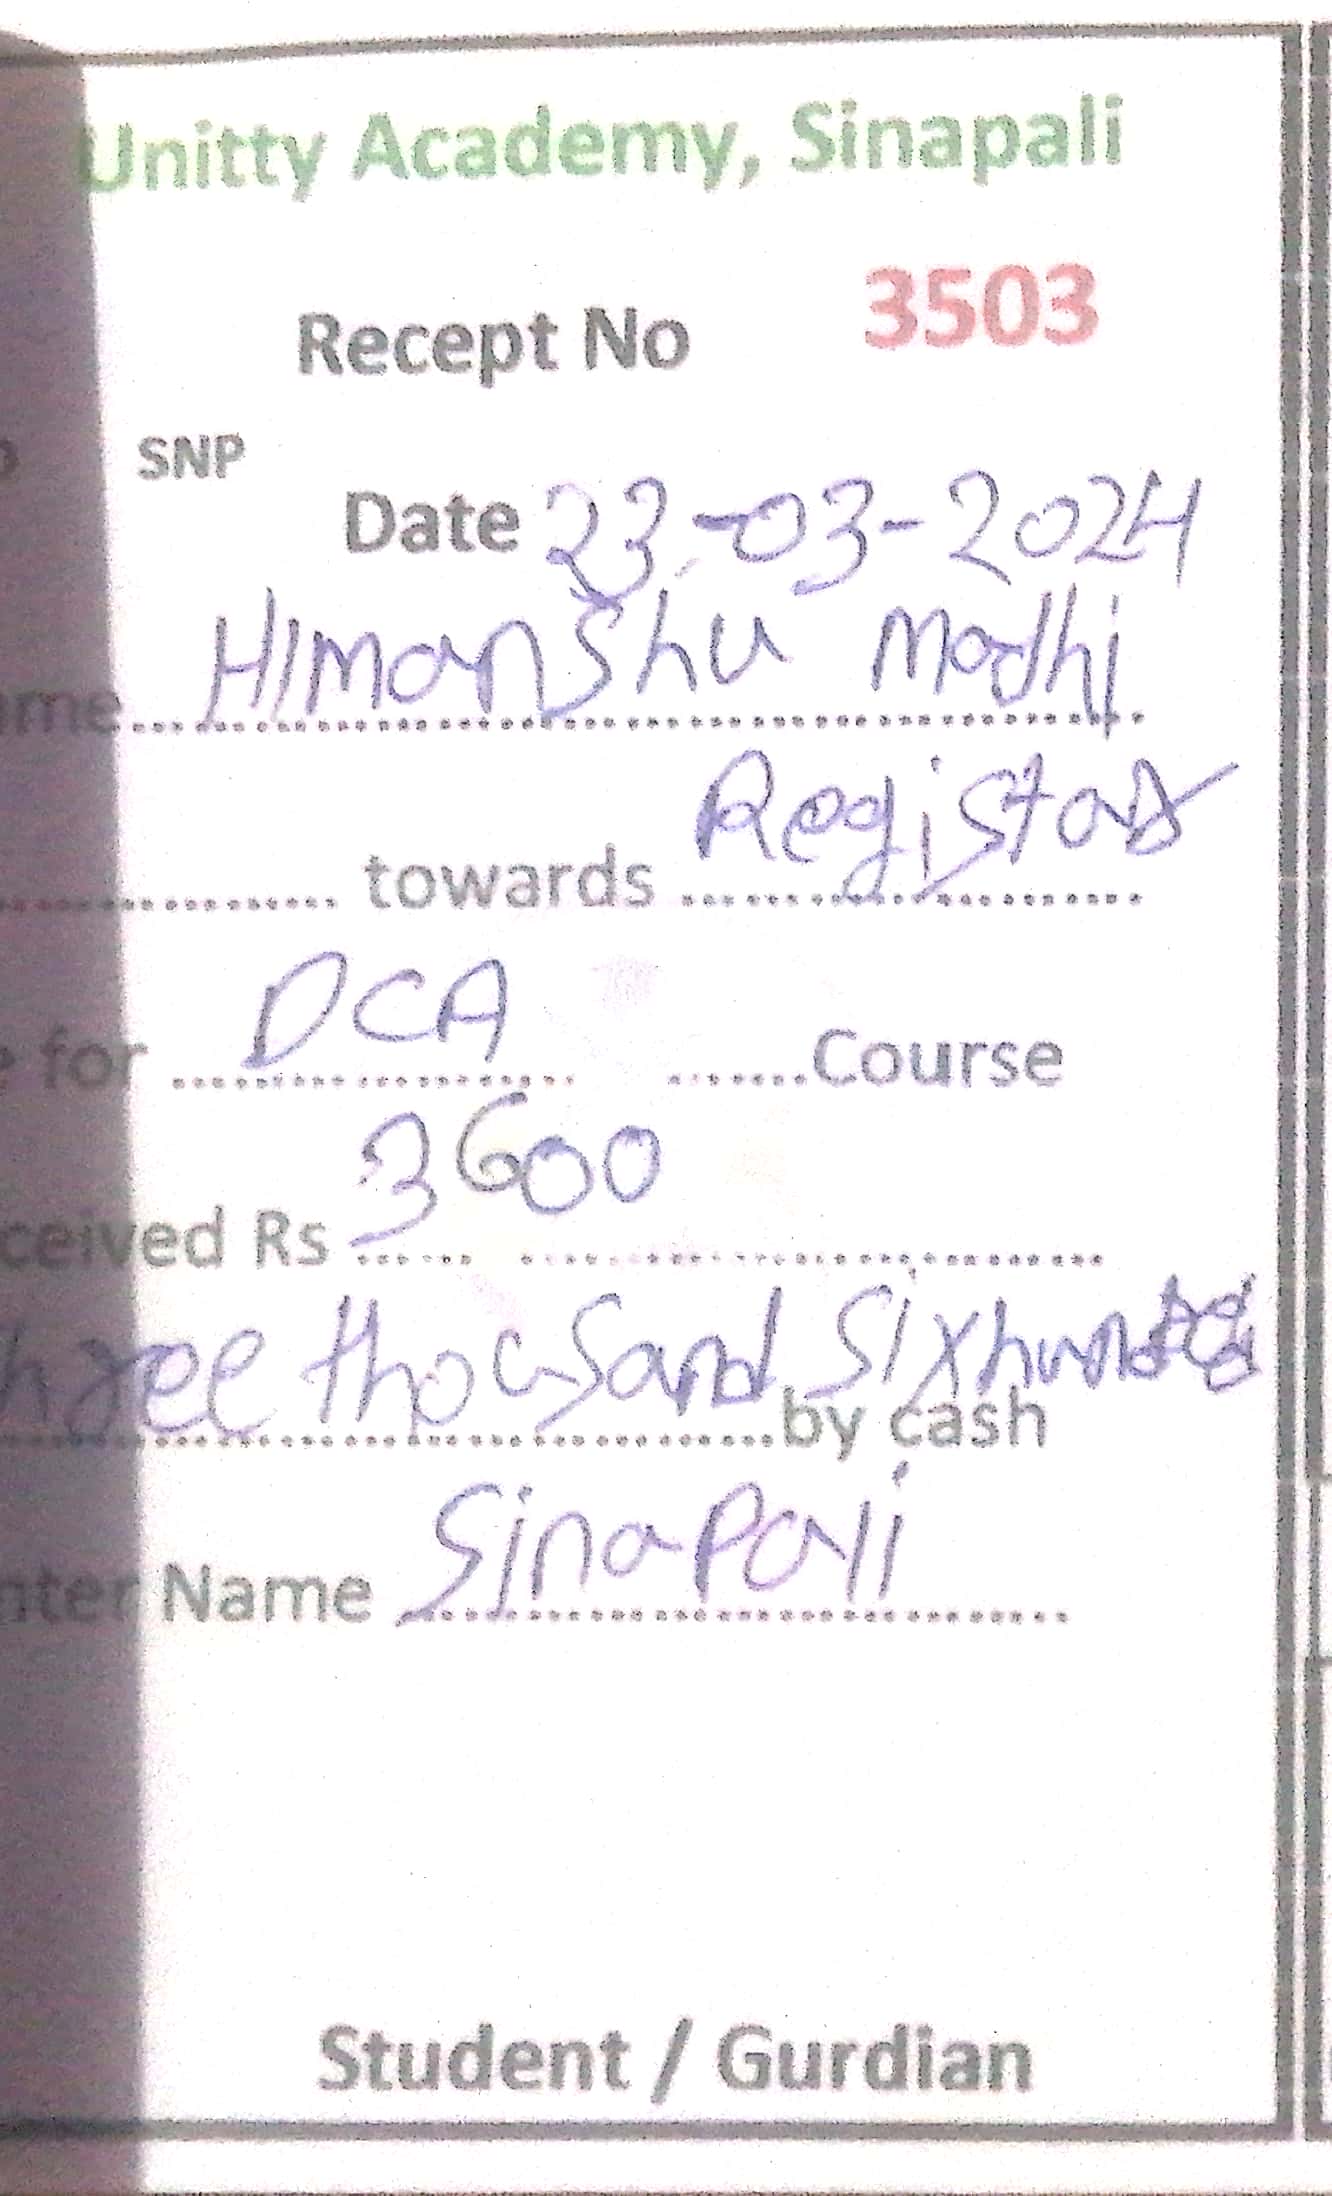 Unitty Academy, Sinapali
Recept No 3503
SNP
Date 23-03-2024
ame... Himanshu Modhi
towards Registar
for DCA Course
ceived Rs 3600
hree thousand Sixhundred
by cash
nter Name Sinapali
Student / Gurdian